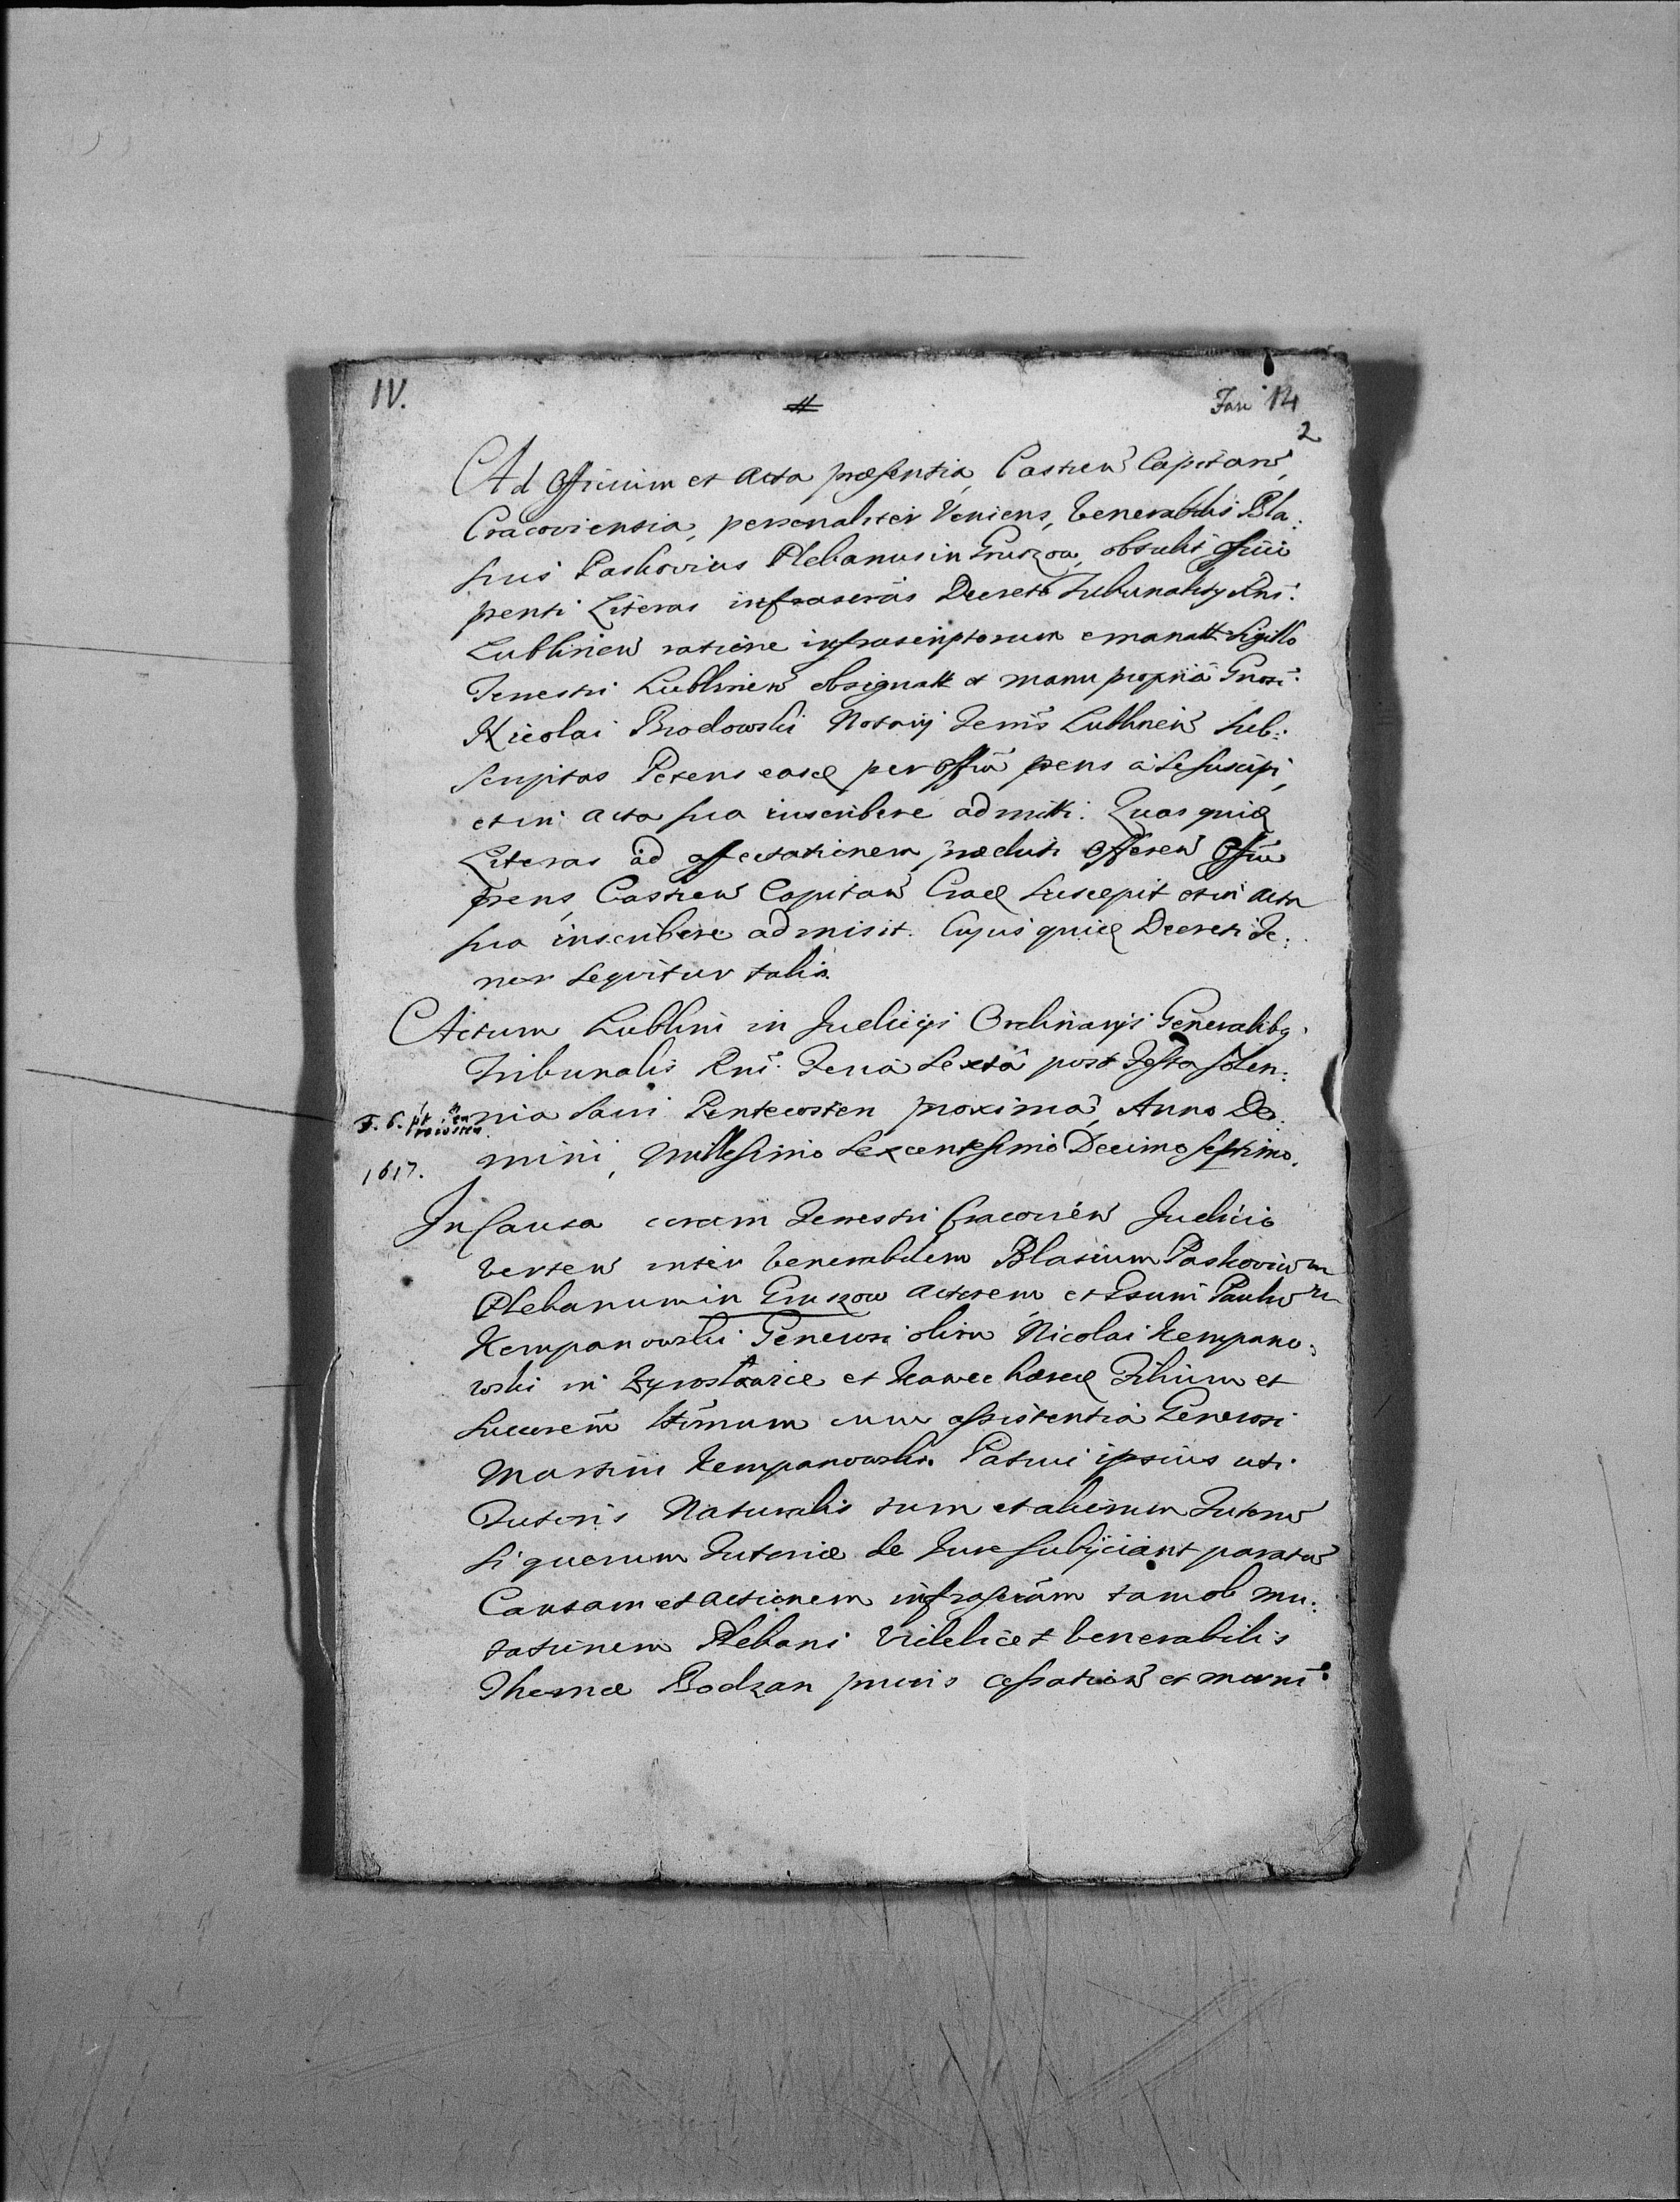 IV.
Fasc 14
2
Ad Officium et Acta præsentia, Castren Capitan,
Cracoviensia, personaliter Veniens, Venerabilis Bla:
sius Paskovius Plebanus in Gruszow, obtulit Officii
pnti Literas infrascrãs Decreti Tribunality Rni:
Lublinen ratione infrascriptorum emanatt Sigillo
Terrestri Lublinen obsignatt et manu propriâ Gnosi:
Nicolai Brodowski Notarij Terris Lublinen sub:
scriptas Petens easq per Offiũ prens à se suscipi,
et in acta sua inscribere admitti. Quas quidq
Literas ad affectationem prædicti Offeren Offiũ
prens, Castren Capitan Cracq suscepit et in acta
sua inscribere admisit. Cujus quidq Decreti Te:
nor sequitur talis.
Actum Lublini in Judicijs Ordinarijs Generalibq.
Tribunalis Rni: Feria Sexta post Festa Solen:
F. 6. pt
nia Sacri Pentecosten proxima, Anno Do:
1617.
mini, Millesimo Sexcentesimo Decimo Septimo.
In Causa coram Terrestri Cracovien Judicio
verten inter Venerabilem Blasium Paskovium
Plebanum in Gruszow Actorem et Gsum Paulum
Kempanowski Generosi olim Nicolai Kempano:
wski in Zyrosławice et Kawec hæredq Filium et
Succorem ltimum cum assistentia Generosi
Martini Kempanowski Patrui ipsius uti
Tutoris Naturalis tum et aliorum Tutorw
si quorum Tutoriæ de Jure subijciant paratw
Causam et actionem infrascrãm tam ob mu:
tationem Plebani Videlicet Venerabilis
Thomæ Bodzan prioris cessation et